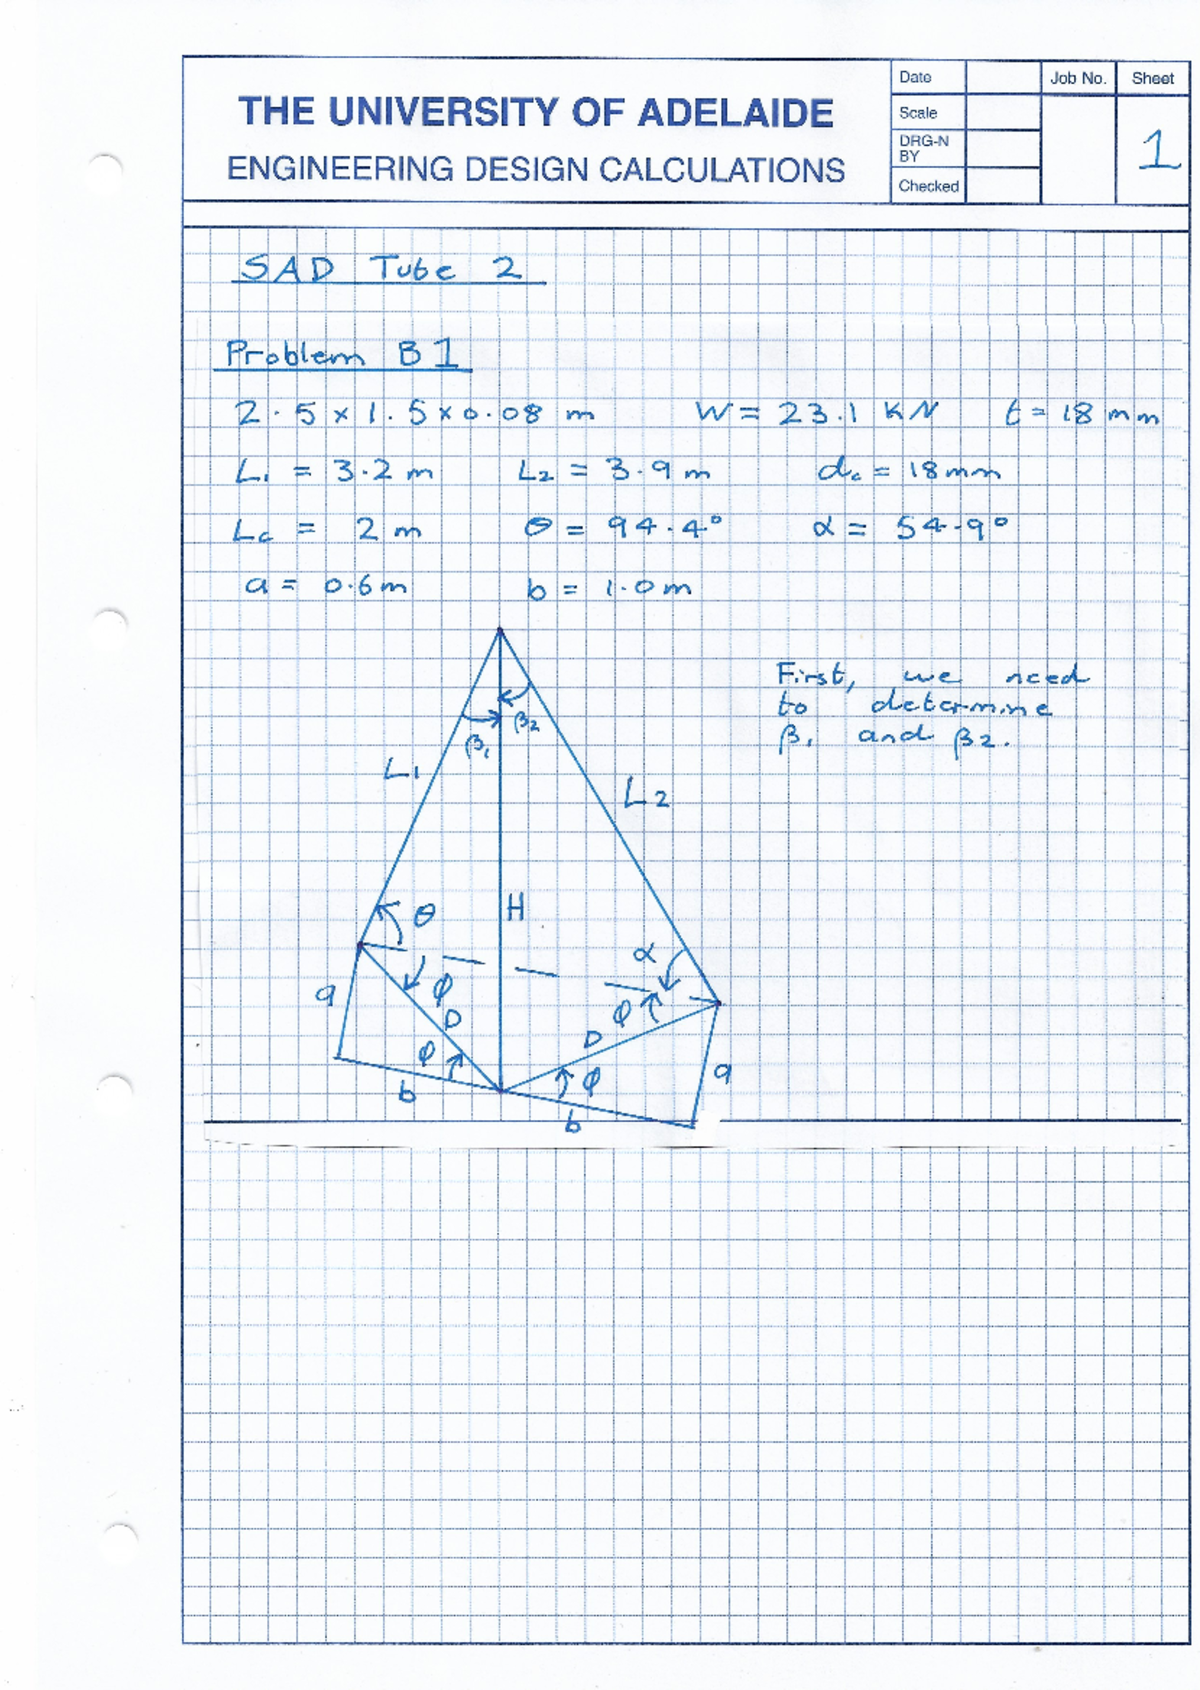 THE UNIVERSITY OF ADELAIDE
ENGINEERING DESIGN CALCULATIONS
Date
Job No.
Sheet
Scale
DRG-N
BY
Checked
1
SAD Tube 2
Problem B1
2.5 × 1.5 × 0.08 m W = 23.1 KN t = 18 mm
L1 = 3.2 m L2 = 3.9 m dc = 18mm
Lc = 2 m θ = 94.4° α = 54.9°
a = 0.6m b = 1.0m
First, we need
to determine
β1 and β2.
β2
β1
L1
L2
θ
H
α
a
φ
φ
D
D
φ
φ
a
b
b